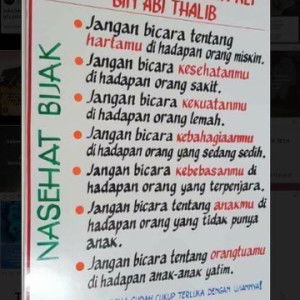 BIN ABI THALIB
NASEHAT BIJAK
Jangan bicara tentang
hartamu di hadapan orang miskin.
Jangan bicara kesehatanmu
di hadapan orang sakit.
Jangan bicara kekuatanmu
di hadapan orang lemah.
Jangan bicara kebahagiaanmu
di hadapan orang yang sedang sedih.
Jangan bicara kebebasanmu di
hadapan orang yang terpenjara.
Jangan bicara tentang anakmu di
hadapan orang yang tidak punya
anak.
Jangan bicara tentang orangtuamu
di hadapan anak-anak yatim.
SUDAH CUKUP TERLUKA DENGAN UJIANNYA!